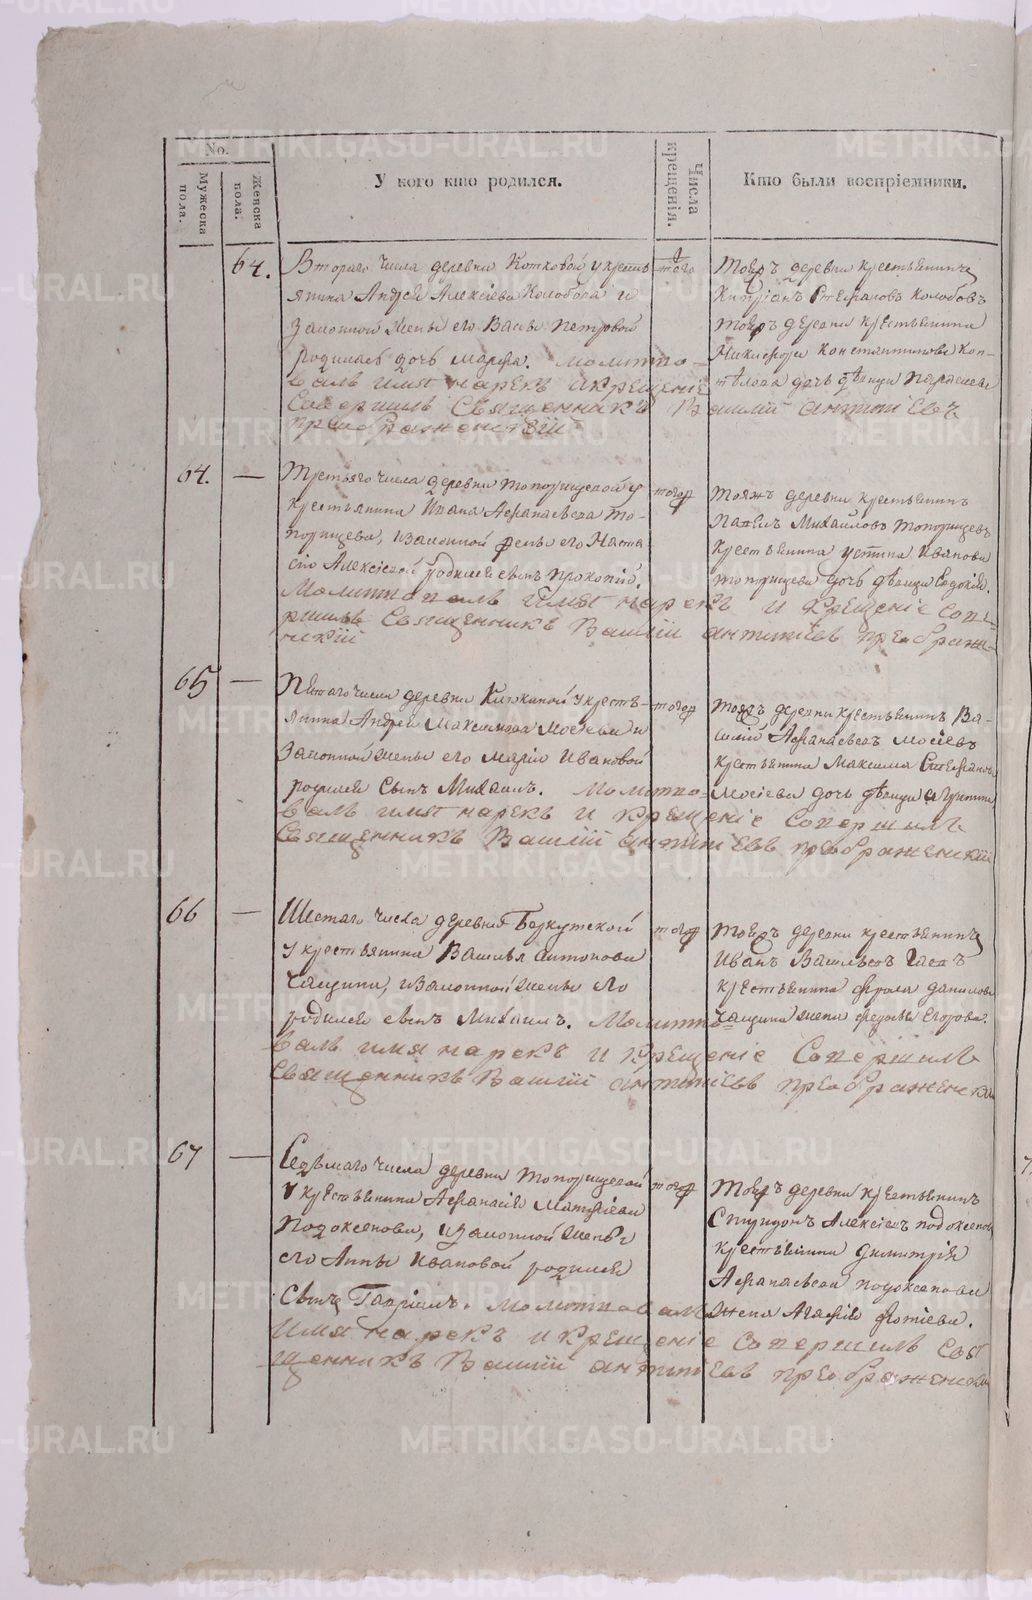 METRIKI.GASO-URAL.RU
No.
Мужеска пола.
Женска пола.
У кого кто родился.
Числа крещенія.
Кто были воспріемники.
64.
Втораго числа деревни Котковой у кресть
янина Андрея Алексіева Колобова и
законной жены его Вассы Петровой
родилась дочь Марфа. Молитво-
валъ имя нарекъ и крещеніе
совершилъ Священникъ Василій Антипіевъ
Преображенскій
того
Тояжъ деревни крестьянинъ
Кипріанъ Стефановъ Колобовъ
тояжъ деревни крестьянина
Никифора Константинова
дочь дѣвица
64. —
Третьяго числа деревни Топорищевой у
крестьянина Ивана Афанасьева То-
порищева, и законной жены его Наста
сіи Алексіевой родился сынъ Прокопій.
Молитвовалъ имя нарекъ и крещеніе сове-
ршилъ Священникъ Василій Антипіевъ Преображе-
нскій
тогож
Тояжъ деревни крестьянинъ
Павелъ Михайловъ Топорищевъ
крестьянина Устина Иванова
Топорищева дочь дѣвица Евдокія.
65 —
Пятаго числа деревни у кресть-
янина Андрея Максимова Мосіева и
законной жены его Маріи Ивановой
родился сынъ Михаилъ. Молитво-
валъ имя нарекъ и крещеніе совершилъ
Священникъ Василій Антипіевъ Преображенскій
тогож
Тояжъ деревни крестьянинъ Ва-
силій Афанасьевъ Мосіевъ
крестьянина Максима Стефанова
Мосіева дочь дѣвица
66 —
Шестаго числа деревни Беркутской
у крестьянина Василья Антонова
Чащина, и законной жены его
родился сынъ Михаилъ. Молитво-
валъ имя нарекъ и крещеніе совершилъ
Священникъ Василій Антипіевъ Преображенскій
тогож
Тояжъ деревни крестьянинъ
Иванъ Васильевъ
крестьянина Фрола Данилова
Чащина жена Федосья Егорова.
67 —
Седьмаго числа деревни Топорищевой
у крестьянина Афанасія Матфіева
Подоксенова, и законной жены
его Анны Ивановой родился
сынъ Гавріилъ. Молитвовалъ
имя нарекъ и крещеніе совершилъ Свя
щенникъ Василій Антипіевъ Преображенскій
тогож
Тояжъ деревни крестьянинъ
Спиридонъ Алексіевъ Подоксеновъ
крестьянина Димитрія
Афанасьева Подоксенова
жена Агафія Фотіева.